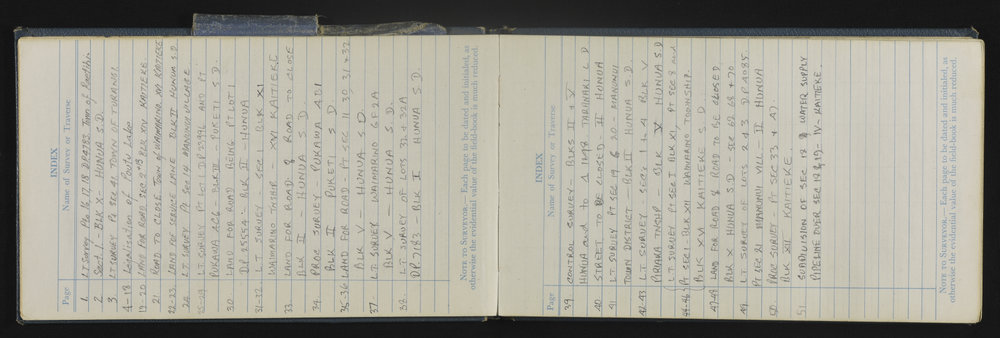 INDEX
Page
Name of Survey or Traverse
1. L.T Survey Pts 16,17,18 DP 4785 Town of
2 Sect. 1 - BLK X - HUNUA S.D.
3. L.T SURVEY Pt Sec 41 TOWN OF
4-18 Legalisation of Lake
19-20 LAND FOR ROAD SEC 2 BLK XIV KAITIEKE
21. ROAD TO CLOSE TOWN OF WAIMARINO XVI KAITIEKE
22-23. LAND FOR SERVICE LANE BLK II HUNUA S.D.
24. L.T SURVEY Pt SEC 14 MANUNUI VILLAGE
25-29 L.T SURVEY PT LOT 1 DP AND PT
PUKETI S.D.
30. LAND FOR ROAD BEING PT LOT 1
DP. 25552 - BLK II - HUNUA
31-32 L.T SURVEY SEC 1 BLK XI
WAIMARINO TNSHP - XVI KAITIEKE
33. LAND FOR ROAD & ROAD TO CLOSE
BLK II - HUNUA S.D
34. PROC SURVEY - PUKAWA 4D1
BLK II PUKETI S.D
35-36 LAND FOR ROAD - PT SEC 11 30 31 & 32
BLK V - HUNUA S.D.
37. L.T. SURVEY WAIMARINO
BLK V - HUNUA S.D.
38. L.T SURVEY OF LOTS 31 & 32A
DP. 7183 - BLK I HUNUA S.D.
NOTE TO SURVEYOR.—Each page to be dated and initialed, as
otherwise the evidential value of the field-book is much reduced.
INDEX
Page
Name of Survey or Traverse
39 CONTROL SURVEY - BLKS II & V
HUNUA and TARANAKI L D
40 STREET TO BE CLOSED - II HUNUA
41 L.T SURVEY PT SEC 19 & 20 - MANUNUI
TOWN DISTRICT - BLK II HUNUA S D
42-43 L.T SURVEY SECS 1 & 4 BLK V
PIRIAKA TNSHP BLK V HUNUA S D
(L.T SURVEY PT SEC 1 BLK XI PT SEC 8
44-46 PT SEC 1 - BLK XII WAIMARINO TOWNSHIP.
(BLK XVI KAITIEKE S D
47-48 LAND FOR ROAD & ROAD TO BE CLOSED
BLK X HUNUA S.D - SEC 62 69 & 70
49. L.T. SURVEY OF LOTS 2 & 3 D.P. 4085.
PT SEC 21 MANUNUI VILL - II HUNUA
50 PROC SURVEY - PT SEC 33 & 47.
BLK XII KAITIEKE.
51. SUBDIVISION OF SEC 18 WATER SUPPLY
PIPELINE OVER SEC 18 & 19 - IV - KAITIEKE.
NOTE TO SURVEYOR.—Each page to be dated and initialed, as
otherwise the evidential value of the field-book is much reduced.